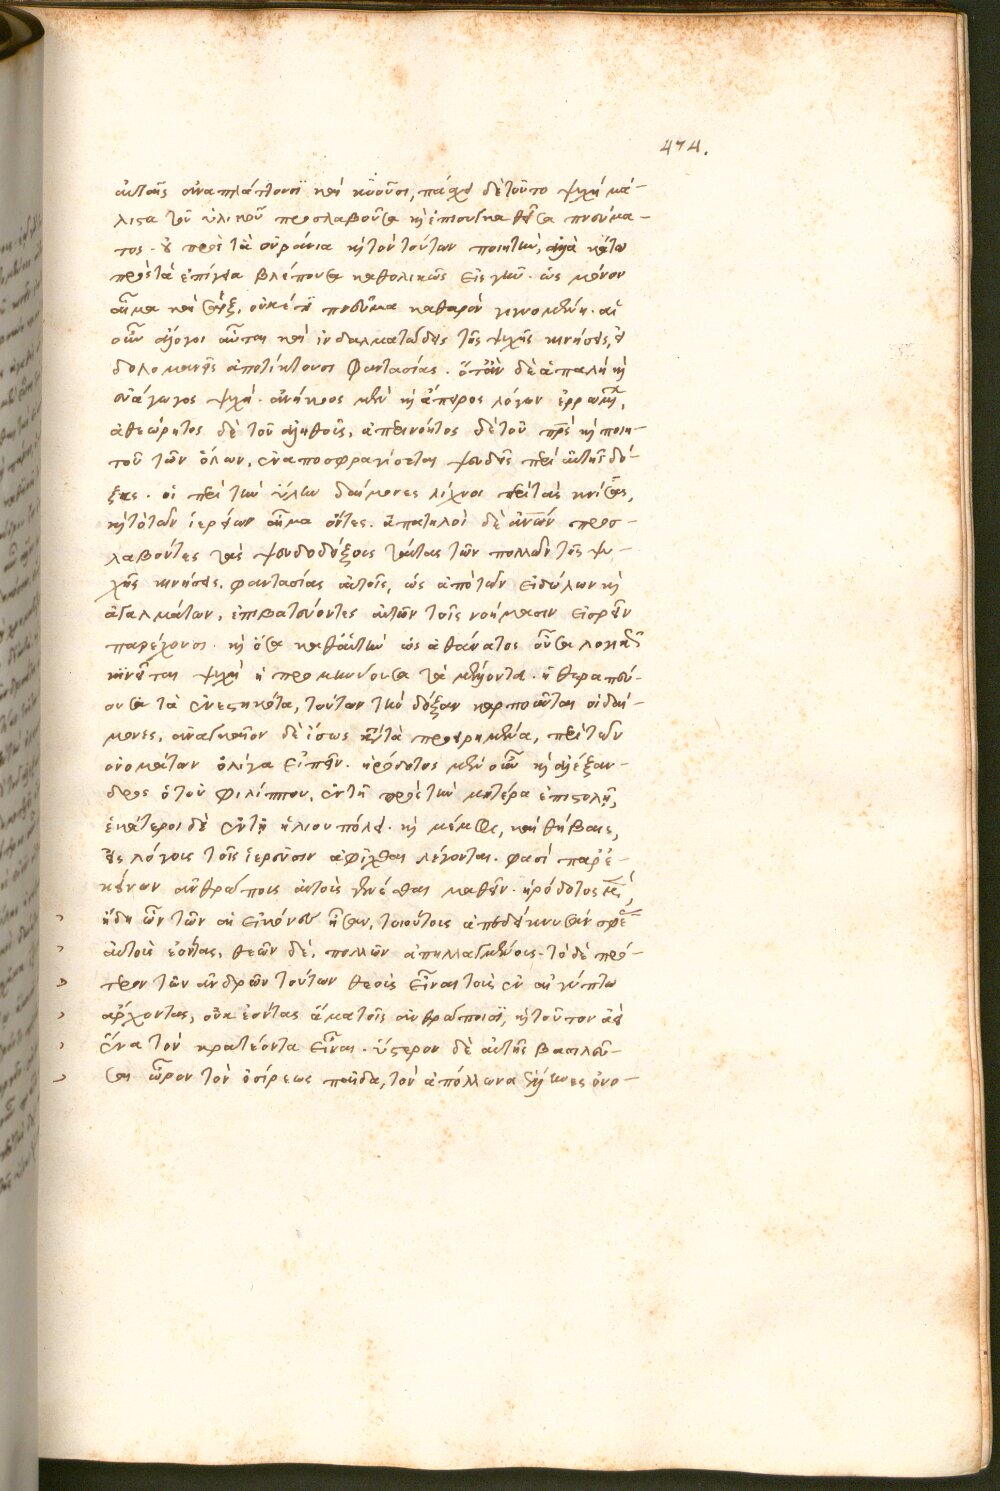 474.
αὐταῖς ἀναπλάττουσι καὶ κινοῦσι, πάσχει δὲ τοῦτο ψυχὴ μά-
λιστα τοῦ ὑλικοῦ προσλαβοῦσα καὶ ἐπισυγκραθεῖσα πνεύμα-
τος. οὐ πρὸς τὰ οὐράνια καὶ τὸν τούτων ποιητὴν, ἀλλὰ κάτω
πρὸς τὰ ἐπίγεια βλέπουσα καθολικῶς εἰς γῆν. ὡς μόνον
αἷμα καὶ σάρξ, οὐκέτι πνεῦμα καθαρὸν γινομένη. αἱ
οὖν ἄλογοι αὗται καὶ ἰνδαλματώδεις τῆς ψυχῆς κινήσεις, εἰ
δωλομανεῖς ἀποτίκτουσι φαντασίας. ὅταν δὲ ἁπαλὴ καὶ
εὐάγωγος ψυχὴ. ἀνήκοος μὲν καὶ ἄπειρος λόγων ἐρρωμένων,
ἀθεώρητος δὲ τοῦ ἀληθοῦς, ἀπερινόητος δὲ τοῦ πρς καὶ ποιη-
τοῦ τῶν ὅλων, ἐναποσφραγίσεται ψευδεῖς περὶ αὐτῆς δό-
ξας. οἱ περὶ τὴν ὕλην δαίμονες λίχνοι περὶ τὰς κνίσας,
καὶ τὸ τῶν ἱερείων αἷμα ὄντες. ἀπατηλοὶ δὲ ἀνων προσ-
λαβόντες τὰς ψευδοδόξους ταύτας τῶν πολλῶν τῆς ψυ-
χῆς κινήσεις. φαντασίας αὐτοῖς, ὡς ἀπὸ τῶν εἰδώλων καὶ
ἀγαλμάτων, ἐπιβατεύοντες αὐτῶν τοῖς νοήμασιν εἰσρεῖν
παρέχουσι. καὶ ὅσα καθ' αὑτὴν ὡς ἀθάνατος οὖσα λογικῶς
κινεῖται ψυχὴ ἢ προμηνύουσα τὰ μέλλοντα. ἢ θεραπεύ-
ουσα τὰ ἐνεστηκότα, τούτων τὴν δόξαν καρποῦνται οἱ δαί-
μονες, ἀναγκαῖον δὲ ἴσως κατὰ προειρημένα, περὶ τῶν
ὀνομάτων ὀλίγα εἰπεῖν. ἡρόδοτος μὲν οὖν καὶ ἀλέξαν-
δρος ὁ τοῦ φιλίππου, ἐν τῇ πρὸς τὴν μητέρα ἐπιστολῇ,
ἑκάτεροι δὲ ἐν τῇ ἡλιουπόλει. καὶ μέμφει, καὶ θήβαις,
εἰς λόγους τοῖς ἱερεῦσιν ἀφῖχθαι λέγονται. φασὶ παρ' ἐ-
κείνων ἀνθρώπους αὐτοὺς γενέσθαι μαθεῖν. ἡρόδοτος μὲν,
ἤδη ὦν τῶν αἱ εἰκόνες ἦσαν, τοιούτους ἀπεδείκνυσαν σφέας
αὐτοὺς ἐόντας, θεῶν δὲ, πολλῶν ἀπηλλαγμένους. τὸ δὲ πρό-
τερον τῶν ἀνδρῶν τούτων θεοὺς εἶναι τοὺς ἐν αἰγύπτω
ἄρχοντας, οὐκ ἐόντας ἅμα τοῖς ἀνθρώποισι, καὶ τούτων ἀεὶ
ἕνα τὸν κρατέοντα εἶναι. ὕστερον δὲ αὐτῆς βασιλεῦ-
σαι ὧρον τὸν ὀσίρεως παῖδα, τὸν ἀπόλλωνα ἕλληνες ὀνο-